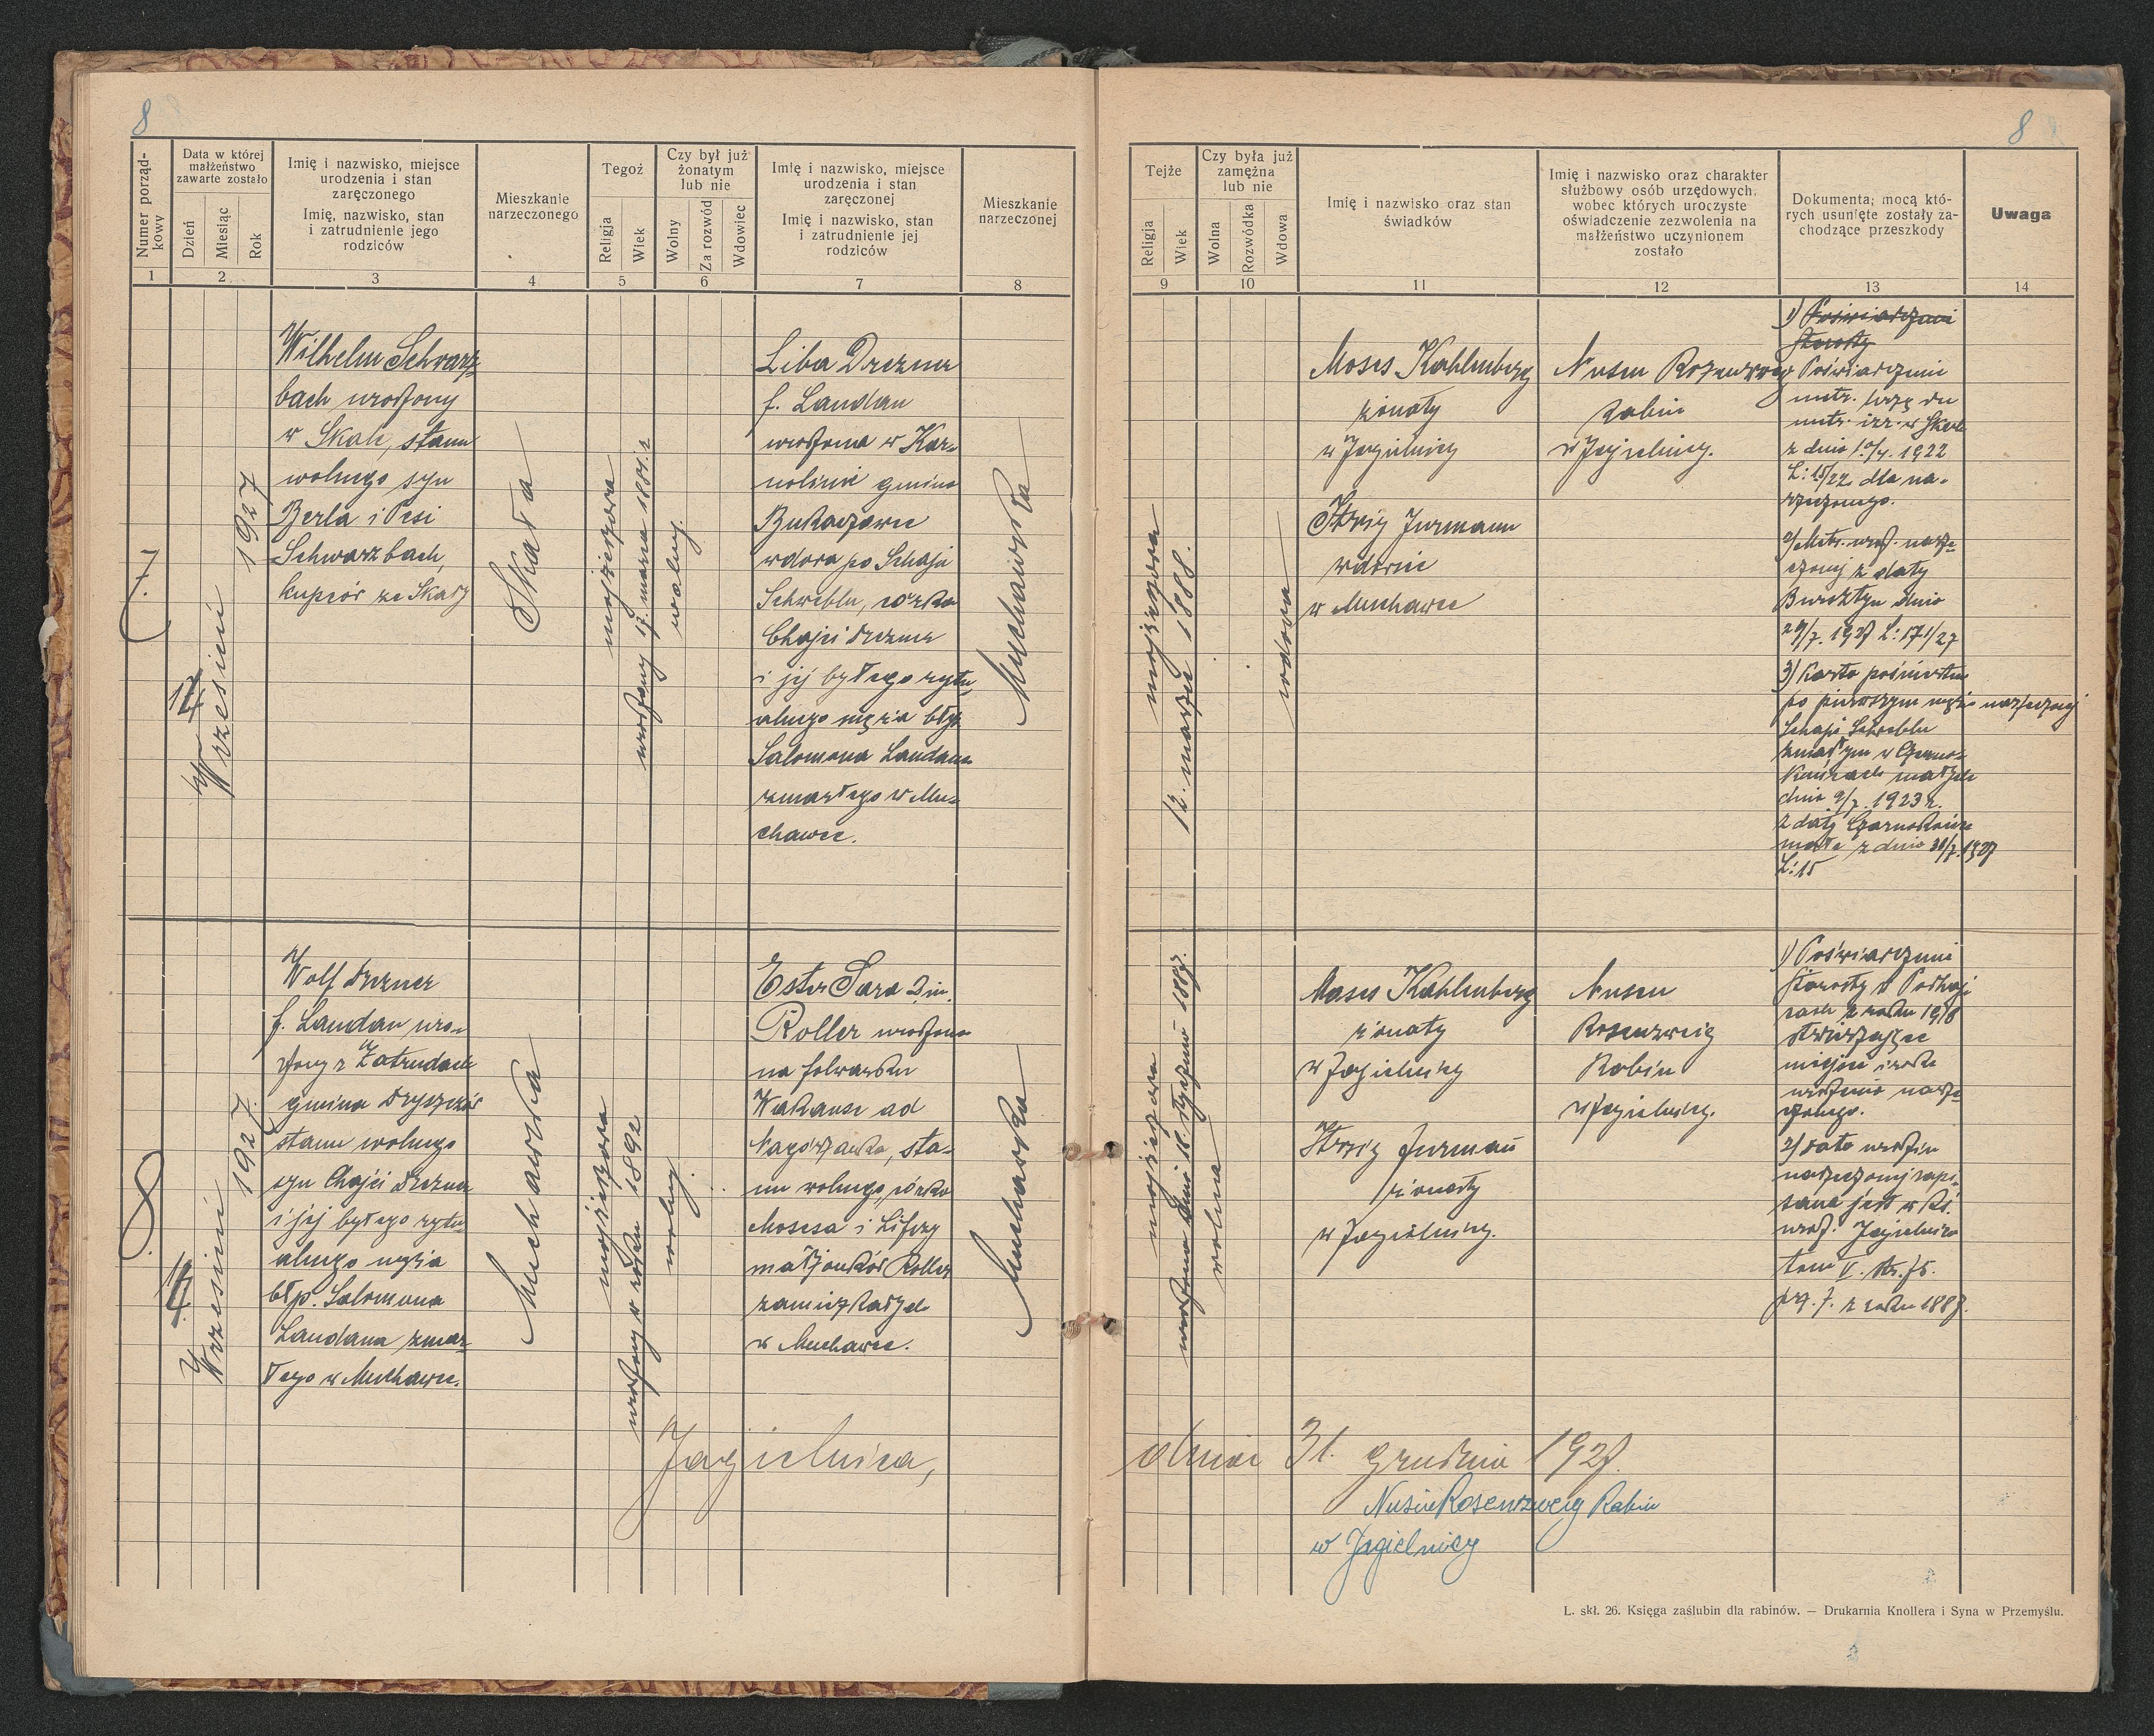 8
Numer porząd-
kowy
Data w której
małżeństwo
zawarte zostało
Dzień
Miesiąc
Rok
Imię i nazwisko, miejsce
urodzenia i stan
zaręczonego
Imię, nazwisko, stan
i zatrudnienie jego
rodziców
Mieszkanie
narzeczonego
Tegoż
Religja
Wiek
Czy był już
żonatym
lub nie
Wolny
Za rozwód
Wdowiec
Imię i nazwisko, miejsce
urodzenia i stan
zaręczonej
Imię i nazwisko, stan
i zatrudnienie jej
rodziców
Mieszkanie
narzeczonej
1
2
3
4
5
6
7
8
7.
14
Wrzesień
1927
Wilhelm Schwarz-
bach urodzony
w Skale, stanu
wolnego syn
Berla i Pesi
Schwarzbach,
kupców ze Skały
Skała
mojżeszowa
urodzony 17. marca
wolny.
Liba Drezner
f. Landau
urodzona w Kar-
gmina
Bukaczowce
wdowa po Schaji
córka
Chajci Drezner
i jej byłego rytu-
alnego męża błp.
Salomona Landaua
zmarłego w Mu-
chawce.
Muchawka
8.
14
Wrzesień
1927.
Wolf Drezner
f. Landau uro-
dzony z Zatrudach
gmina Dryszczów
stanu wolnego
syn Chajci Drezner
i jej byłego rytu-
alnego męża
błp. Salomona
Landaua zmar-
łego w Muchawce.
Muchawka
mojżeszowa
urodzony w roku 1892
wolny.
Ester Sara 2 im.
Roller urodzona
na folwarku
Wakanse ad
Nagórzanka, sta-
nu wolnego, córka
Mosesa i Lifczy
małżonków Roller
zamieszkałych
w Muchawce.
Muchawka
Jagielnica,
8
Tejże
Religja
Wiek
Czy była już
zamężna
lub nie
Wolna
Rozwódka
Wdowa
Imię i nazwisko oraz stan
świadków
Imię i nazwisko oraz charakter
służbowy osób urzędowych,
wobec których uroczyste
oświadczenie zezwolenia na
małżeństwo uczynionem
zostało
Dokumenta; mocą któ-
rych usunięte zostały za-
chodzące przeszkody
Uwaga
9
10
11
12
13
14
mojżeszowa
12. marzec 1888.
wdowa
Moses Kahlenberg
żonaty
w Jagielnicy
Hersig Jurmann
wdowiec
w Muchawce
Nusen Rozenzweig
Rabin
w Jagielnicy.
1) Poświadczenie
Starosty
Poświadczenie
metr. urzędu
metr. izr. w Skale
z dnia 10/4. 1922
L: 15/22. dla na-
rzeczonego.
2) Metr. urodz. narze-
czonej z daty
Bursztyn dnia
29/7. 1927 L: 171/27
3) Karta pośmiertna
po pierwszym mężu narzeczonej
zmarłym w Czarno-
końcach małych
dnia 9/7. 1923 r.
z daty Czarnokońce
małe z dnia 31/7. 1927
L: 15
mojżeszowa
urodzona dnia 15. stycznia 1887.
wolna
Moses Kahlenberg
żonaty
w Jagielnicy
Hersig Jurman
żonaty
w Jagielnicy.
Nusen
Rosenzweig
Rabin
w Jagielnicy.
1) Poświadczenie
Starosty w Podhaj-
cach z roku 1918
stwierdzające
miejsce i rok
urodzenia narze-
czonego.
2) data urodzin
narzeczonej zapi-
sana jest w ks.
urodz. Jagielnica
tom V. str. 75.
poz. 7. z roku 1887.
dnia 31. grudnia 1927.
Nusin Rosenzweig Rabin
w Jagielnicy
L. skł. 26. Księga zaślubin dla rabinów. — Drukarnia Knollera i Syna w Przemyślu.